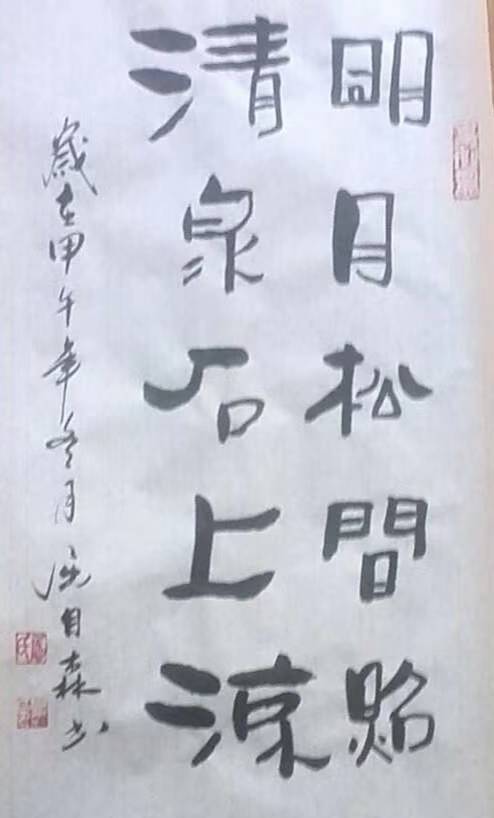 明月松間照
清泉石上涼
歲在甲午年冬月 自森书